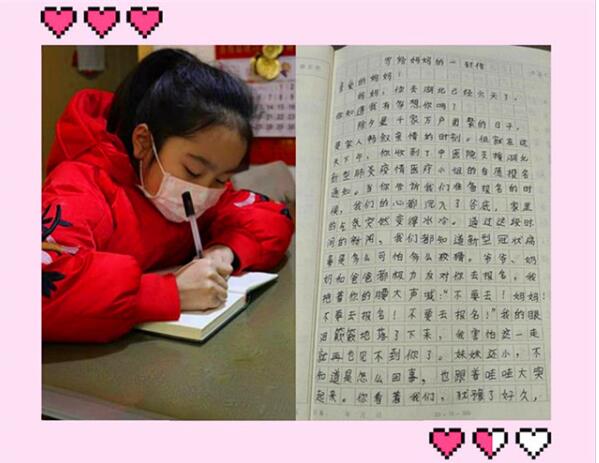 写给妈妈的一封信
亲爱的妈妈:
妈妈,你去湖北已经六天了,
你知道我有多想你吗?
除夕是千家万户团聚的日子,
是家人畅叙亲情的时刻。但就在这
天下午,你收到了中医院支援湖北
新型肺炎疫情医疗小组的自愿报名
通知。当你告诉我们准备报名的时
候,我们的心都沉入了谷底,家里
的气氛突然变得冰冷。通过这段时
间的新闻,我们都知道新型冠状病
毒是多么可怕多么棘手。爷爷、奶
奶和爸爸都极力反对你去报名。我
抱着你的腰大声喊:“不要去!妈妈!
不要去报名!不要去报名!”我的眼
泪簌簌地落了下来,我害怕这一走
就再也见不到你了。妹妹还小,不
知道是怎么回事,也跟着哇哇大哭
起来。你看着我们,犹豫了好久,